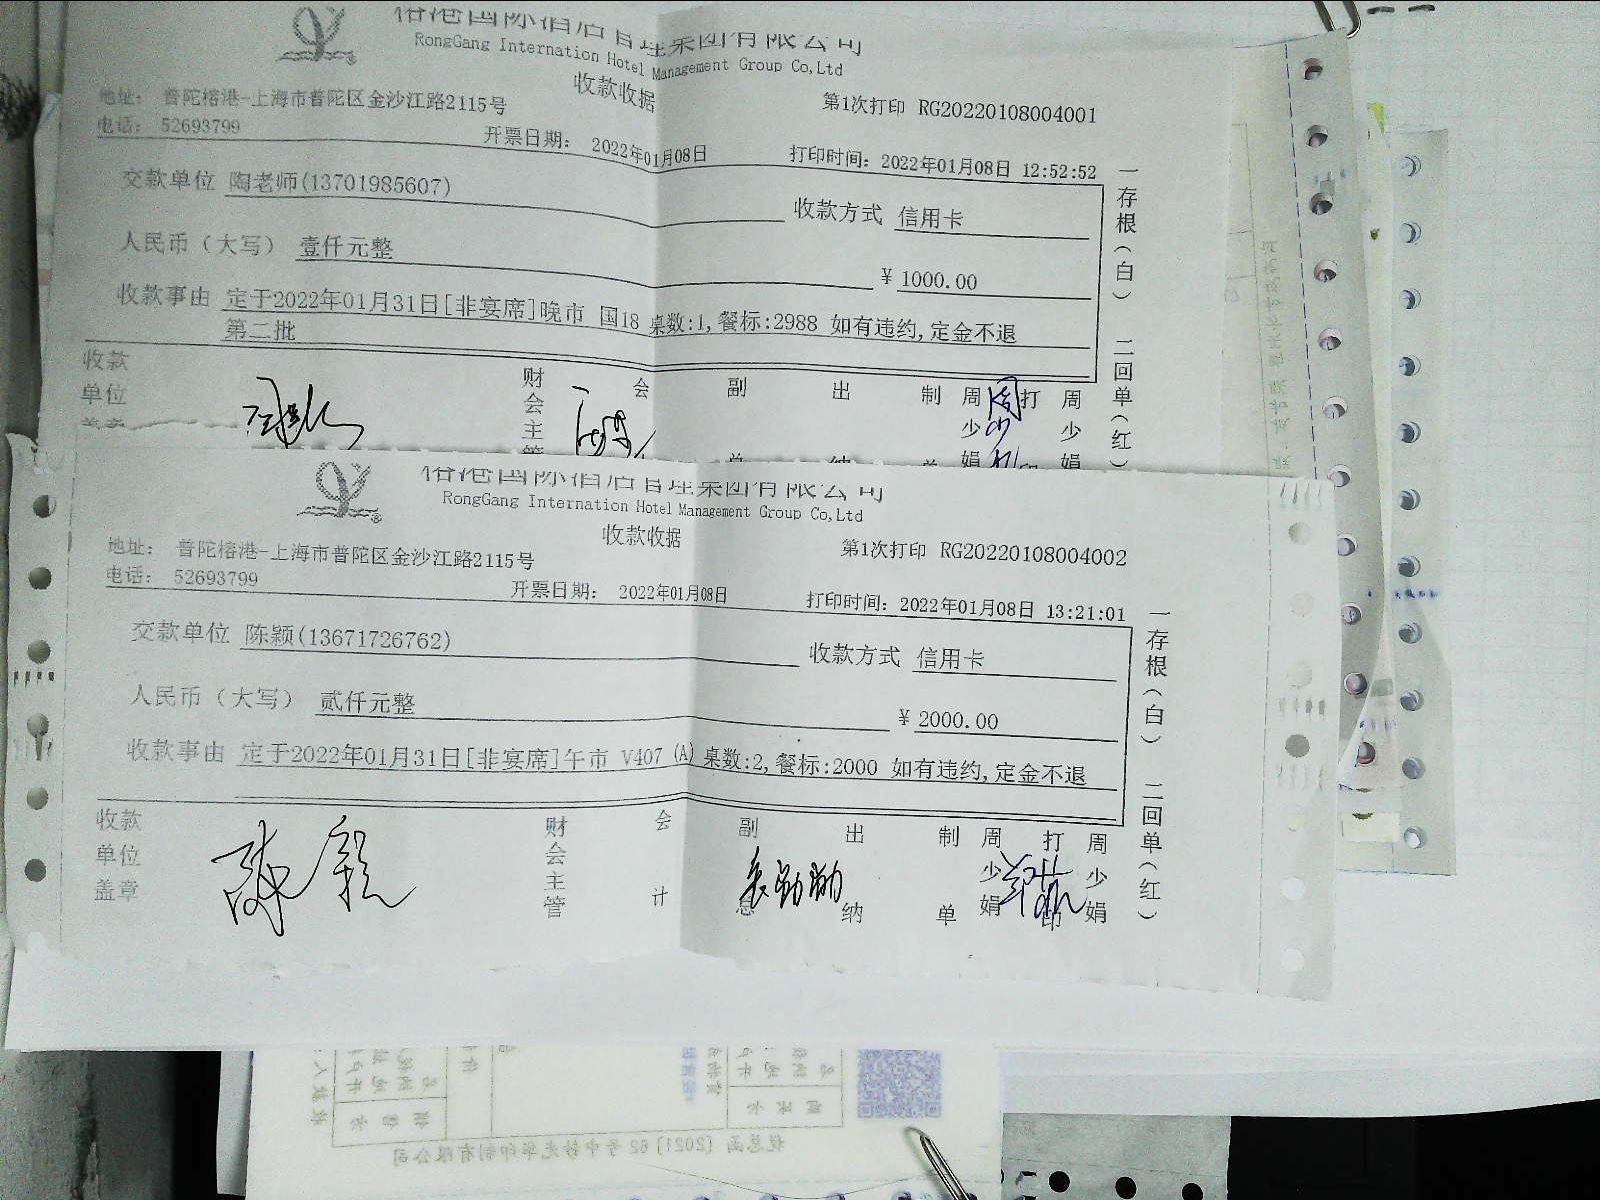 榕港国际酒店管理集团有限公司
RongGang Internation Hotel Management Group Co,Ltd
收款收据
地址： 普陀榕港-上海市普陀区金沙江路2115号
第1次打印 RG20220108004001
电话： 52693799
开票日期： 2022年01月08日
打印时间：2022年01月08日 12:52:52
交款单位 陶老师(13701985607)
收款方式 信用卡
人民币（大写） 壹仟元整
¥ 1000.00
收款事由 定于2022年01月31日[非宴席]晚市 国18 桌数:1,餐标:2988 如有违约,定金不退
第二批
一存根（白） 二回单（红）
收款单位盖章
财会主管
会
副
出纳
制单
周少娟
打印
周少娟
榕港国际酒店管理集团有限公司
RongGang Internation Hotel Management Group Co,Ltd
收款收据
地址： 普陀榕港-上海市普陀区金沙江路2115号
第1次打印 RG20220108004002
电话： 52693799
开票日期： 2022年01月08日
打印时间：2022年01月08日 13:21:01
交款单位 陈颖(13671726762)
收款方式 信用卡
人民币（大写） 贰仟元整
¥ 2000.00
收款事由 定于2022年01月31日[非宴席]午市 V407 (A) 桌数:2,餐标:2000 如有违约,定金不退
一存根（白） 二回单（红）
收款单位盖章
陈颖
财会主管
会计
副总
出纳
制单
周少娟
打印
周少娟